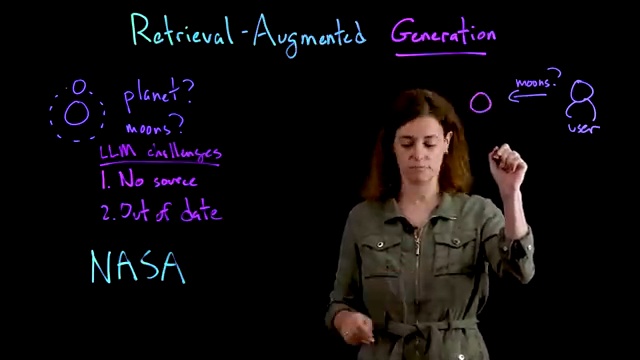 Retrieval-Augmented Generation
planet?
moons?
LLM challenges
1. No source
2. Out of date
NASA
moons?
user